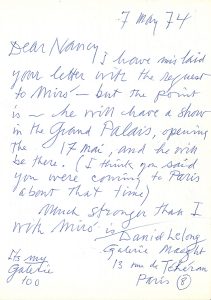 7 May 74
Dear Nancy
I have mis laid
your letter with the request
to Miró — but the point
is — he will have a show
in the Grand Palais, opening
the 17 mai, and he will
be there. (I think you said
you were coming to Paris
about that time)
Much stronger than I
with Miró is Daniel Lelong
Galerie Maeght
13 rue de Téhéran
Paris (8)
It's my
Galerie
too